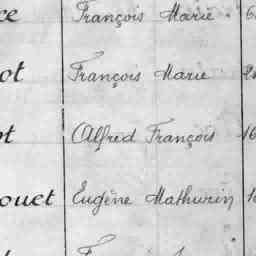 ce François Marie 6
ot François Marie 2
ot Alfred François 16
ouet Eugène Mathurin 1